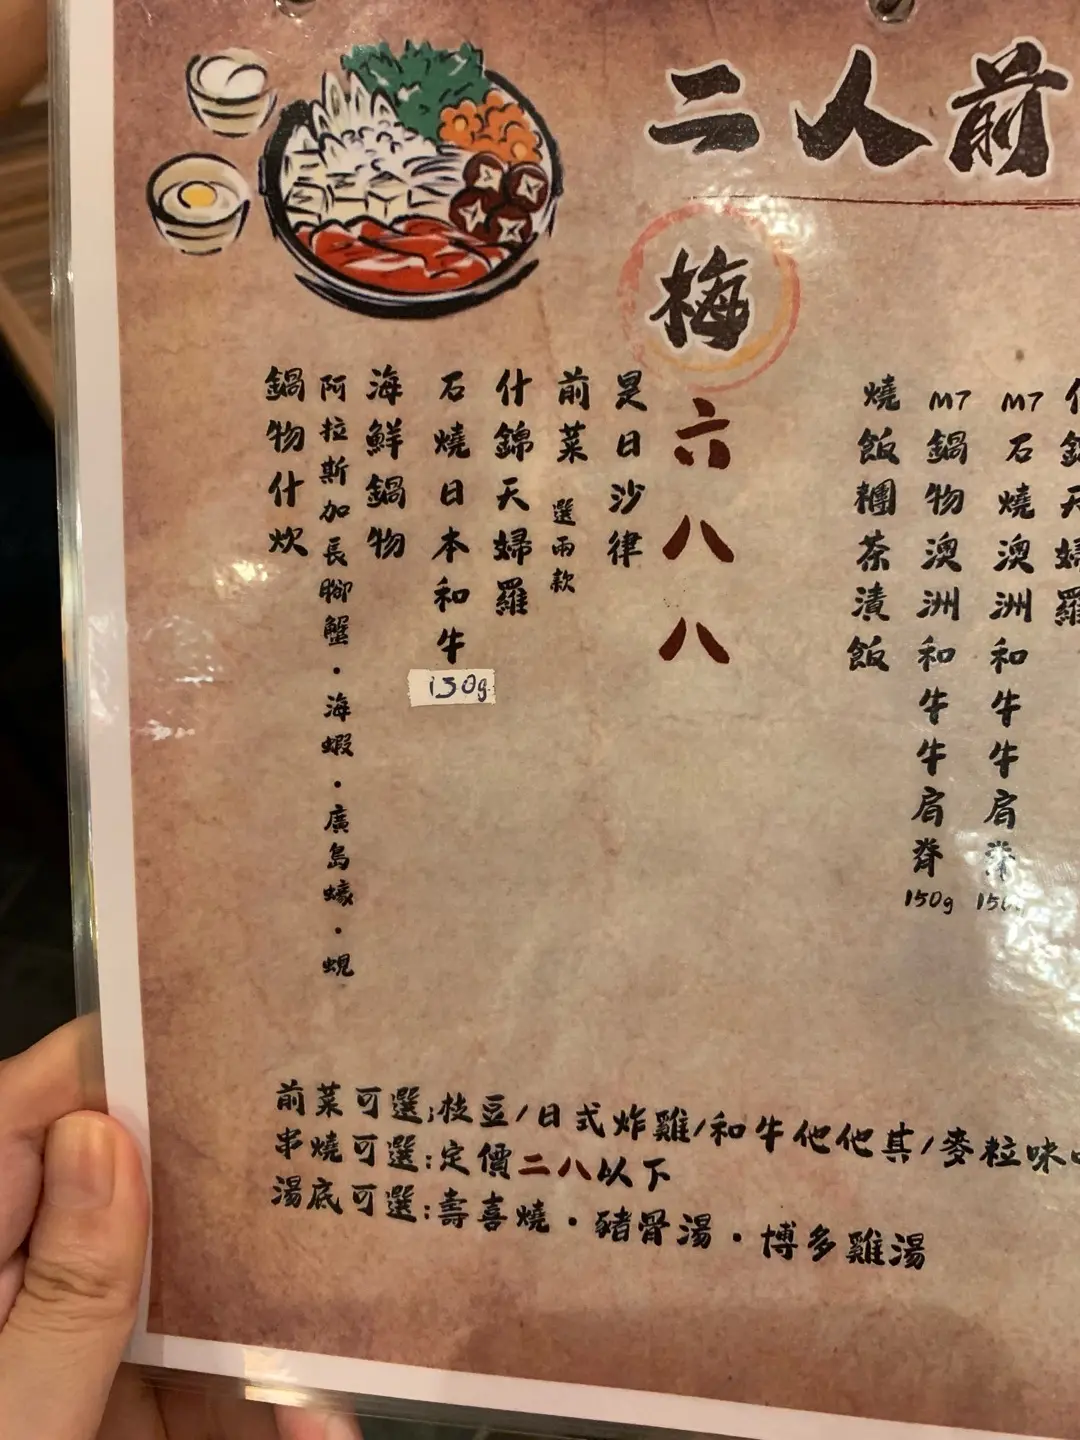 二人前
什錦天婦羅
M7石燒澳洲和牛牛肩脊
M7鍋物澳洲和牛牛肩脊150g
燒飯糰茶漬飯
梅
六八八
是日沙律
前菜 選兩款
什錦天婦羅
石燒日本和牛
150g
海鮮鍋物
阿拉斯加長腳蟹・海蝦・廣島蠔・蜆
鍋物什炊
前菜可選:枝豆/日式炸雞/和牛他他其/麥粒味
串燒可選:定價二八以下
湯底可選:壽喜燒・豬骨湯・博多雞湯